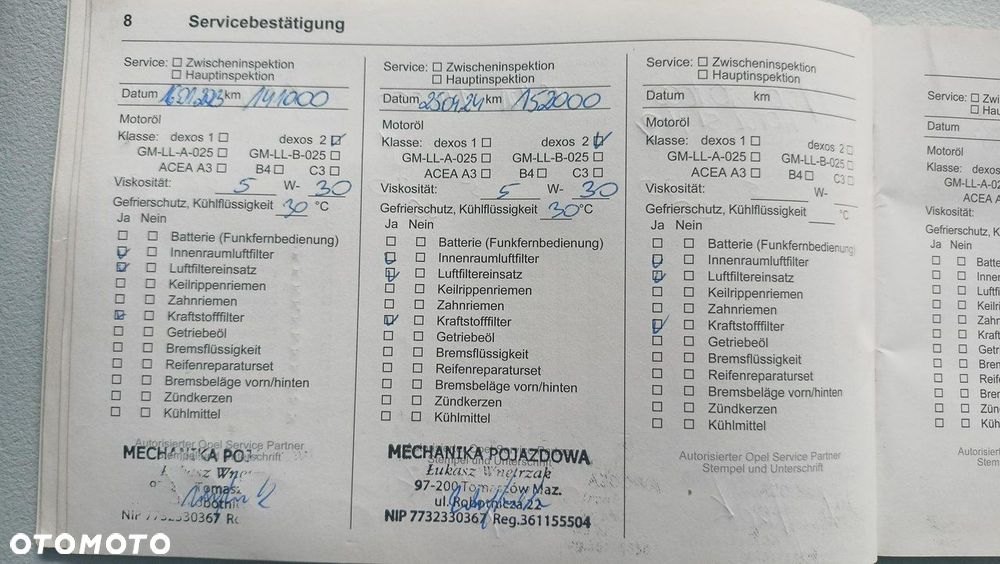 8 Servicebestätigung
Service: ☐ Zwischeninspektion
☐ Hauptinspektion
Datum 16.01.2023 km 141000
Motoröl
Klasse: dexos 1 ☐ dexos 2 ☑
GM-LL-A-025 ☐ GM-LL-B-025 ☐
ACEA A3 ☐ B4 ☐ C3 ☐
Viskosität: 5 W- 30
Gefrierschutz, Kühlflüssigkeit 30 °C
Ja Nein
☐ ☐ Batterie (Funkfernbedienung)
☑ ☐ Innenraumluftfilter
☑ ☐ Luftfiltereinsatz
☐ ☐ Keilrippenriemen
☐ ☐ Zahnriemen
☑ ☐ Kraftstofffilter
☐ ☐ Getriebeöl
☐ ☐ Bremsflüssigkeit
☐ ☐ Reifenreparaturset
☐ ☐ Bremsbeläge vorn/hinten
☐ ☐ Zündkerzen
☐ ☐ Kühlmittel
Autorisierter Opel Service Partner
MECHANIKA POJ
Łukasz Wnę
Tomasz
NIP 7732330367
Service: ☐ Zwischeninspektion
☐ Hauptinspektion
Datum 25.04.24 km 152000
Motoröl
Klasse: dexos 1 ☐ dexos 2 ☑
GM-LL-A-025 ☐ GM-LL-B-025 ☐
ACEA A3 ☐ B4 ☐ C3 ☐
Viskosität: 5 W- 30
Gefrierschutz, Kühlflüssigkeit 30 °C
Ja Nein
☐ ☐ Batterie (Funkfernbedienung)
☑ ☐ Innenraumluftfilter
☑ ☐ Luftfiltereinsatz
☐ ☐ Keilrippenriemen
☐ ☐ Zahnriemen
☑ ☐ Kraftstofffilter
☐ ☐ Getriebeöl
☐ ☐ Bremsflüssigkeit
☐ ☐ Reifenreparaturset
☐ ☐ Bremsbeläge vorn/hinten
☐ ☐ Zündkerzen
☐ ☐ Kühlmittel
MECHANIKA POJAZDOWA
Stempel und Unterschrift
Łukasz Wnętrzak
97-200 Tomaszów Maz.
ul. Robotnicza 22
NIP 7732330367 Reg.361155504
Service: ☐ Zwischeninspektion
☐ Hauptinspektion
Datum km
Motoröl
Klasse: dexos 1 ☐ dexos 2 ☐
GM-LL-A-025 ☐ GM-LL-B-025 ☐
ACEA A3 ☐ B4 ☐ C3 ☐
Viskosität: W-
Gefrierschutz, Kühlflüssigkeit °C
Ja Nein
☐ ☐ Batterie (Funkfernbedienung)
☑ ☐ Innenraumluftfilter
☑ ☐ Luftfiltereinsatz
☐ ☐ Keilrippenriemen
☐ ☐ Zahnriemen
☑ ☐ Kraftstofffilter
☐ ☐ Getriebeöl
☐ ☐ Bremsflüssigkeit
☐ ☐ Reifenreparaturset
☐ ☐ Bremsbeläge vorn/hinten
☐ ☐ Zündkerzen
☐ ☐ Kühlmittel
Autorisierter Opel Service Partner
Stempel und Unterschrift
Service: ☐ Zw
☐ Hau
Datum
Motoröl
Klasse: dexos
GM-LL-A-02
ACEA A
Viskosität:
Gefrierschutz, K
Ja Nein
☐ ☐ Batte
☐ ☐ Innen
☐ ☐ Luftfi
☐ ☐ Keilri
☐ ☐ Zahn
☐ ☐ Kraft
☐ ☐ Getr
☐ ☐ Bren
☐ ☐ Reife
☐ ☐ Bre
☐ ☐ Zün
☐ ☐ Küh
Autorisie
OTOMOTO